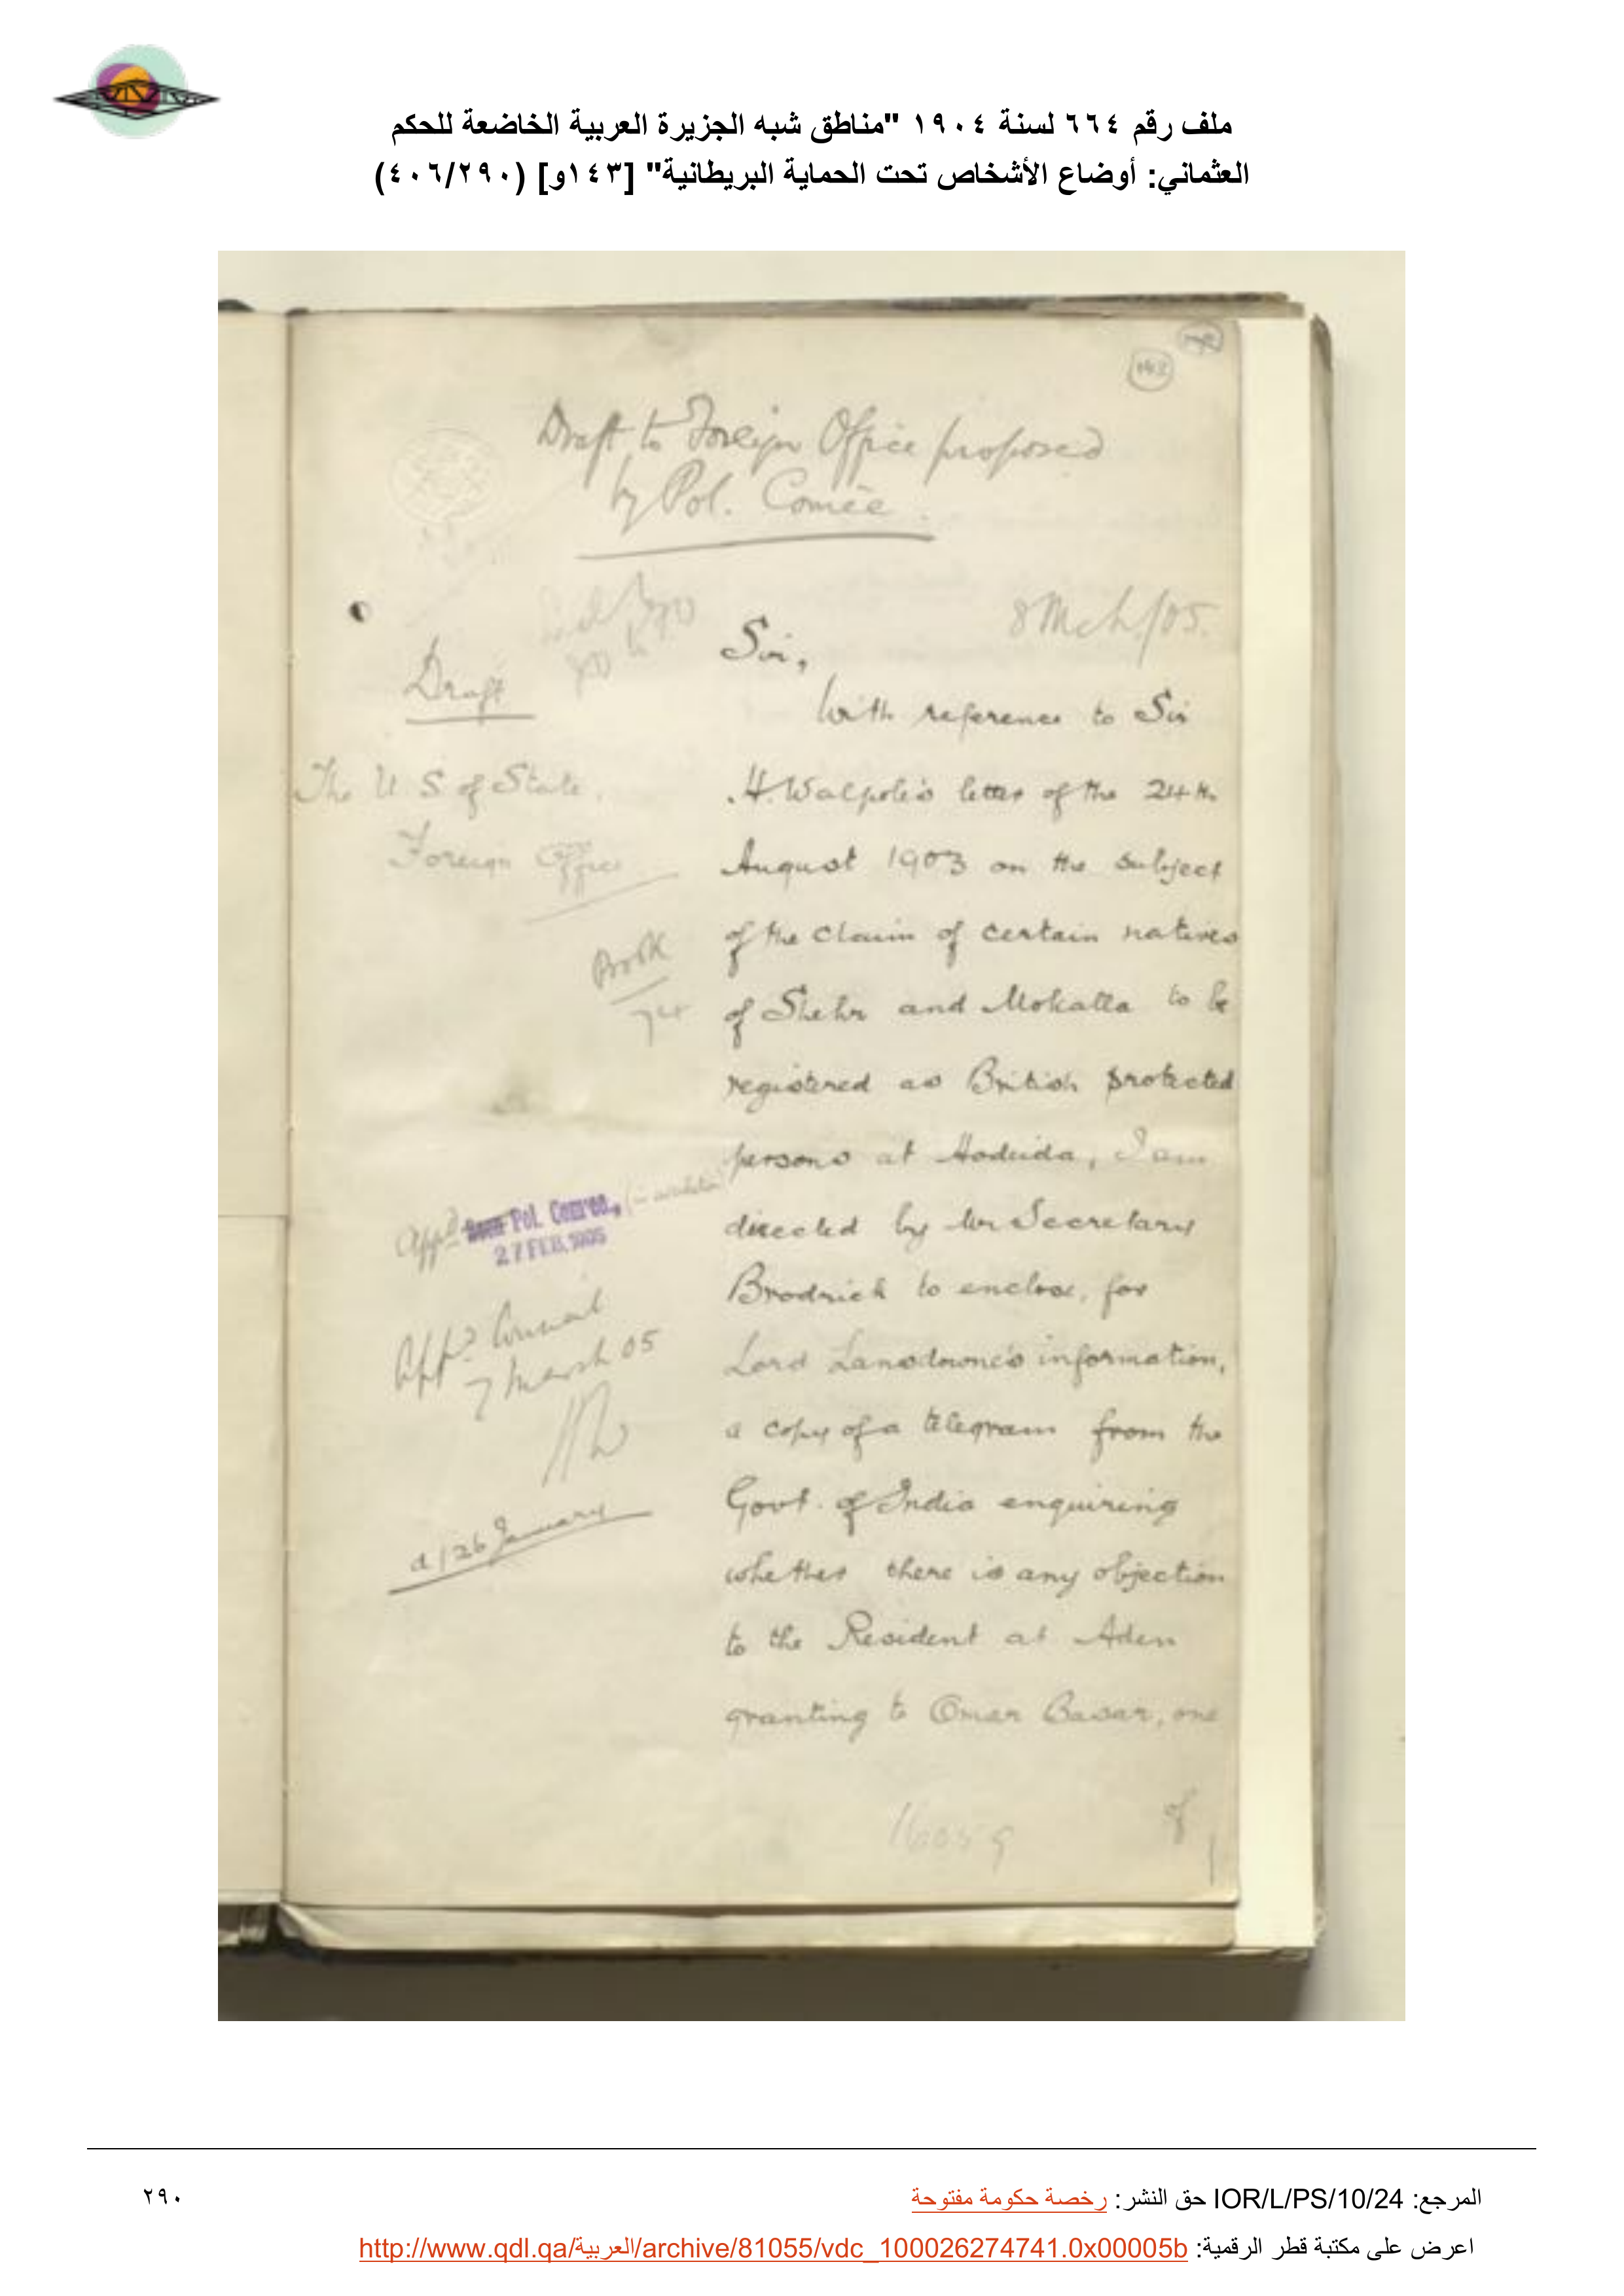 ملف رقم ٦٦٤ لسنة ١٩٠٤ "مناطق شبه الجزيرة العربية الخاضعة للحكم
العثماني: أوضاع الأشخاص تحت الحماية البريطانية" [١٤٣و] (٤٠٦/٢٩٠)
143
Draft to Foreign Office proposed
by Pol. Comee.
8 Mch/05.
Draft
The U. S. of State,
Foreign Office
Sir,
With reference to Sir
H. Walpole's letter of the 24th
August 1903 on the subject
of the claim of certain natives
of Shehr and Mokalla to be
registered as British protected
persons at Hodeida, I am
directed by Mr Secretary
Brodrick to enclose, for
Lord Lansdowne's information,
a copy of a telegram from the
Govt. of India enquiring
whether there is any objection
to the Resident at Aden
granting to Omar Basar, one
of
Appd Seen Pol. Comee.,
27 FEB. 1905
Appd Council
7 March 05
d/ 26 January
المرجع: IOR/L/PS/10/24 حق النشر: رخصة حكومة مفتوحة
٢٩٠
اعرض على مكتبة قطر الرقمية: http://www.qdl.qa/العربية/archive/81055/vdc_100026274741.0x00005b